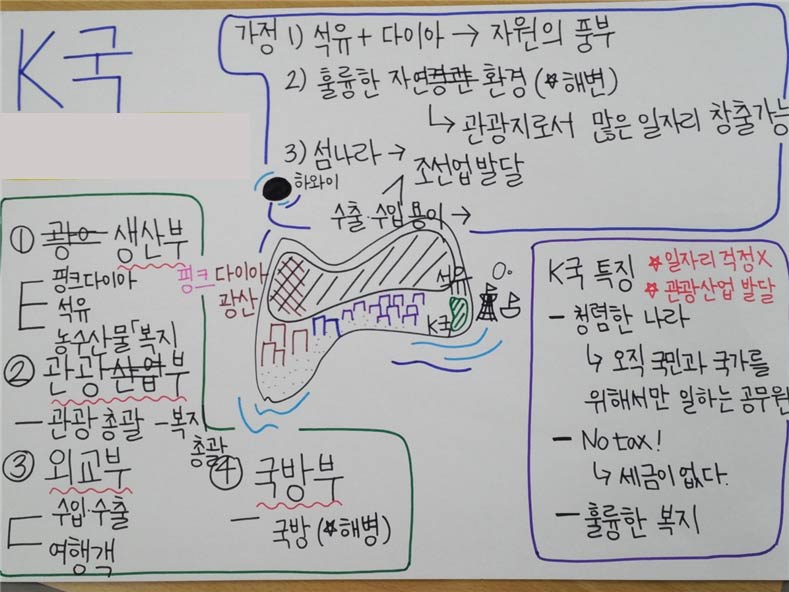 K국
가정 1) 석유 + 다이아 → 자원의 풍부
2) 훌륭한 자연경관 환경 (☆해변)
↳ 관광지로서 많은 일자리 창출가능
3) 섬나라 → 조선업 발달
하와이
수출·수입 용이 →
① 광으 생산부
핑크다이아
석유
농수산물「복지
② 관광산업부
— 관광 총괄 — 복지
총괄
③ 외교부
수입·수출
여행객
④ 국방부
— 국방 (☆해병)
핑크 다이아
광산
석유
K국
K국 특징
☆일자리 걱정X
☆관광산업 발달
— 청렴한 나라
↳ 오직 국민과 국가를
위해서만 일하는 공무원
— No tax!
↳ 세금이 없다.
— 훌륭한 복지